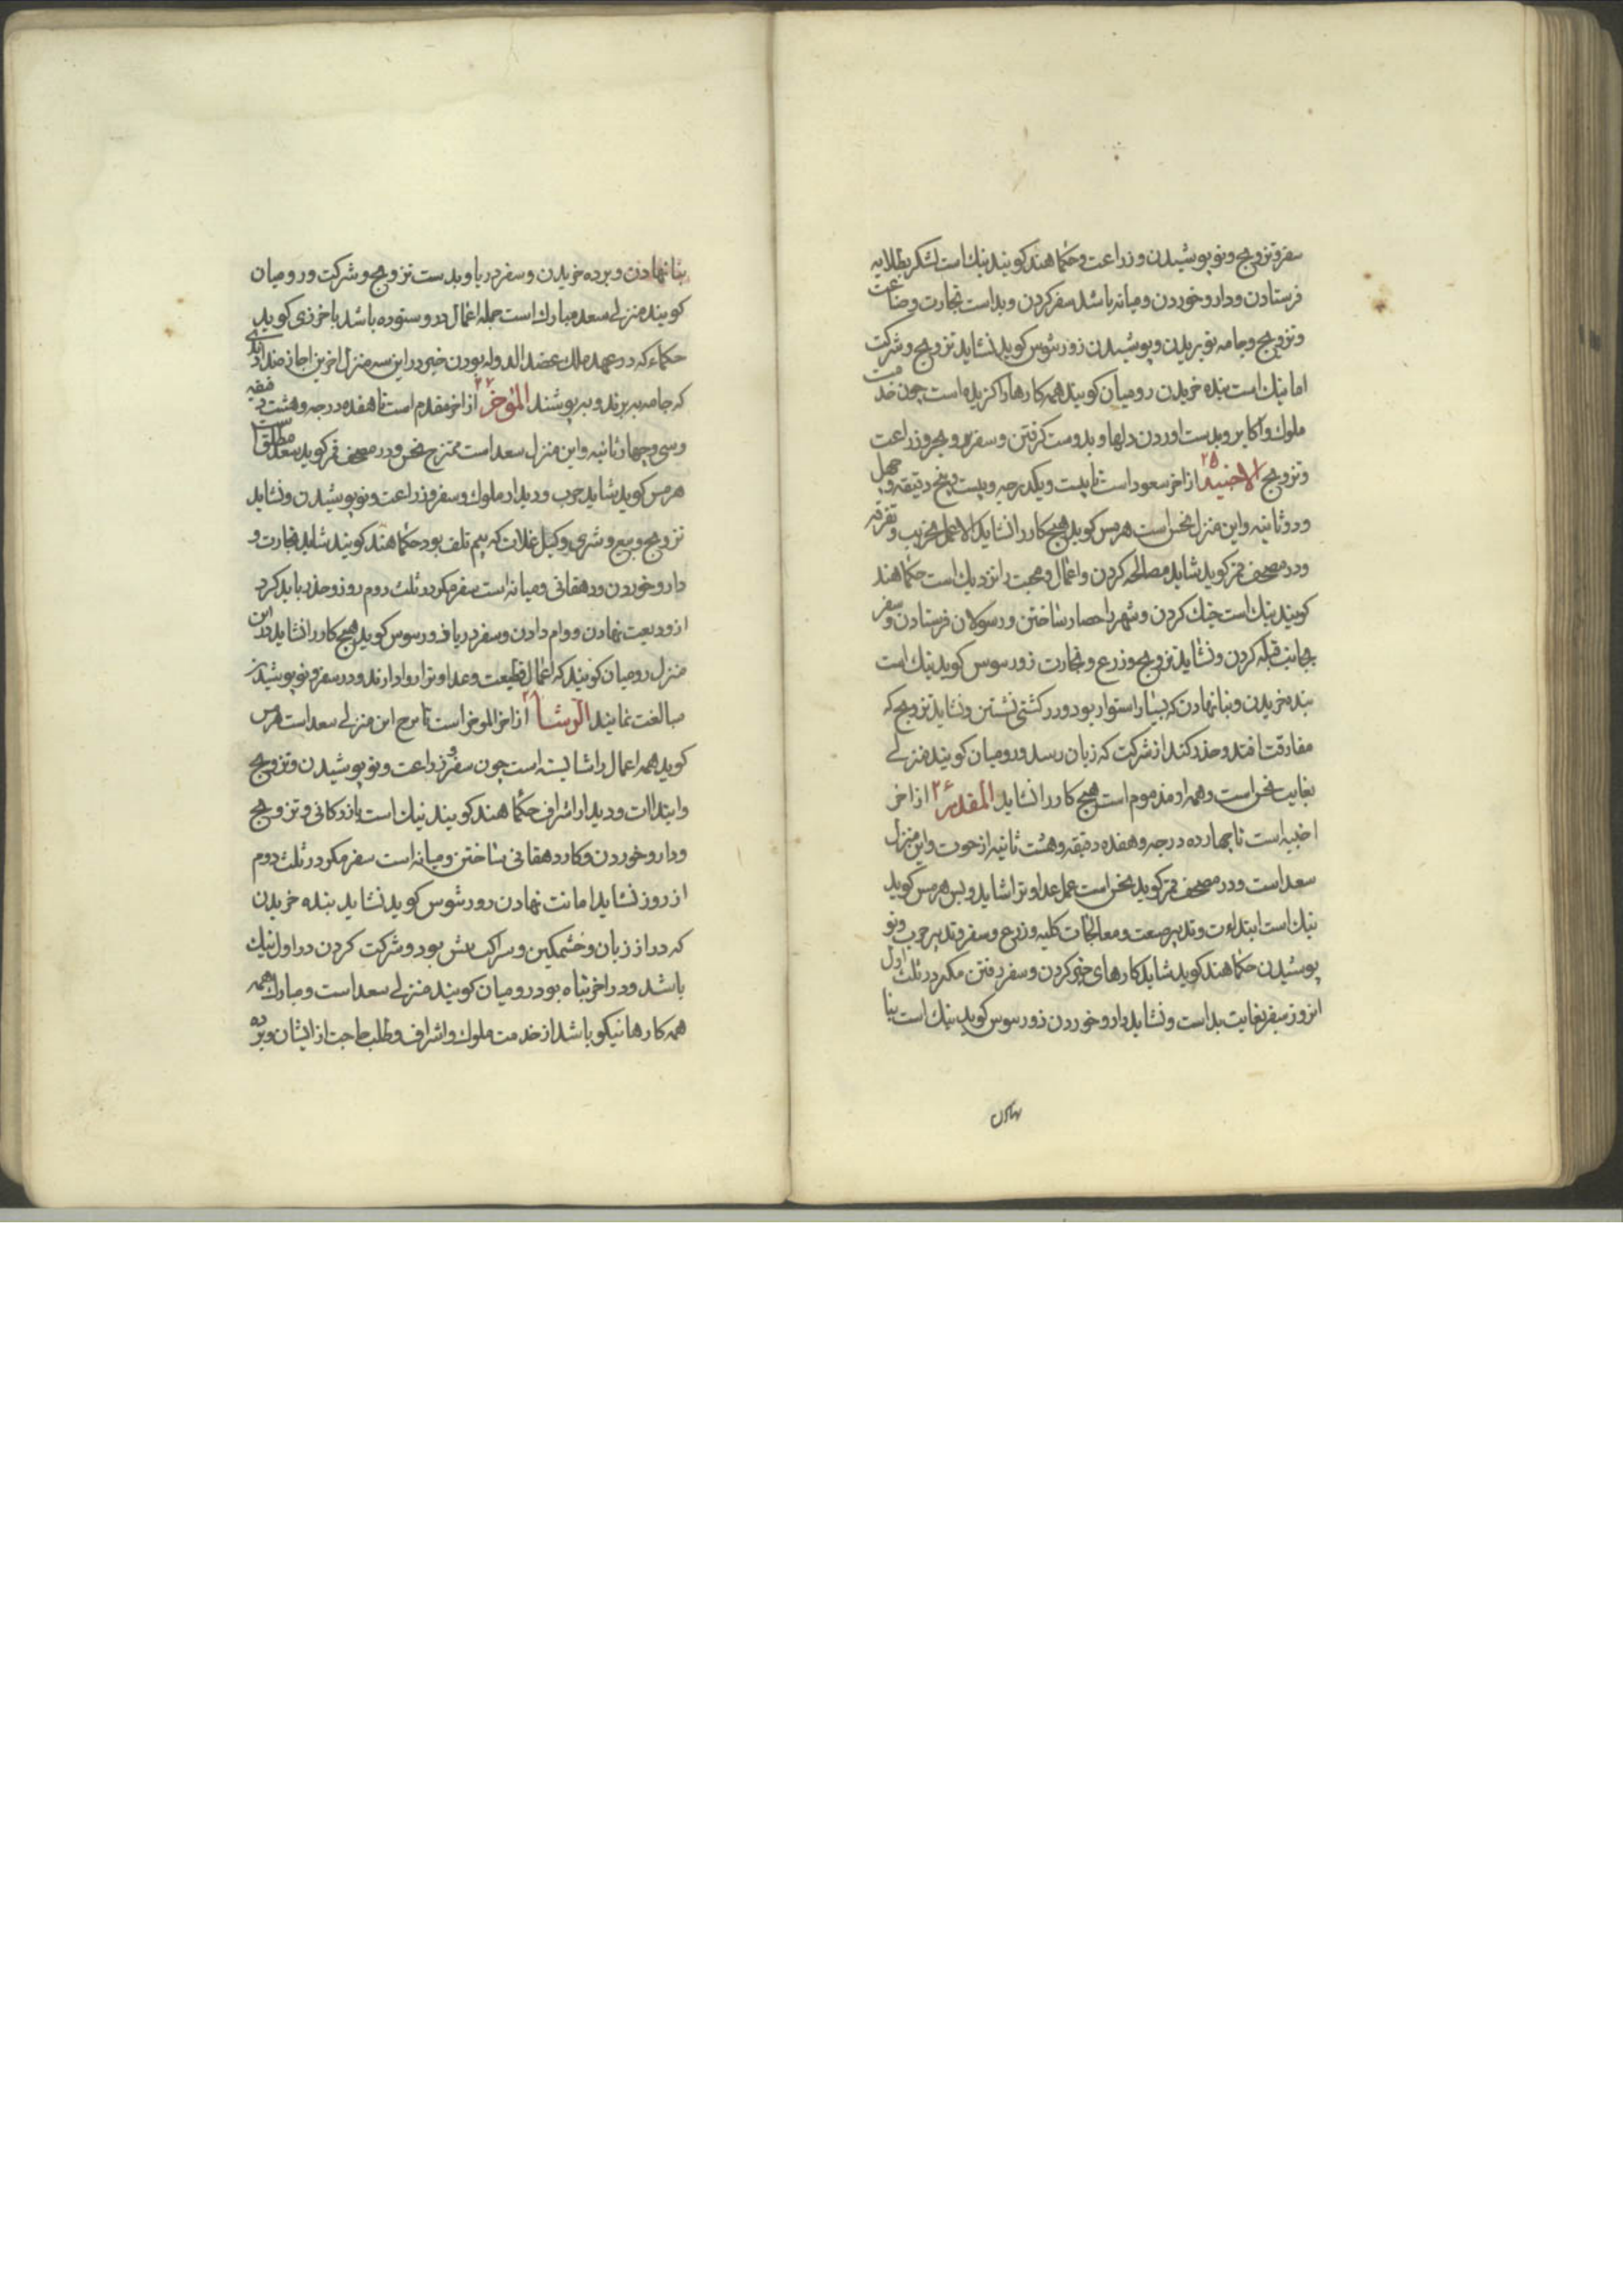 سفر و تزویج و نو پوشیدن و زراعت و حکماء هند کویند نیك است لشکر بطلایه
فرستادن و دارو خوردن و میانه باشد سفر کردن و بد است تجارت و ضاعت
و تزویج و جامه نو بریدن و پوشیدن زورسوس کوید نشاید تزویج و شرکت
اما نیك است بنده خریدن رومیان کویند همه کارها را کزیده است چون خدمت
ملوك و اکابر و بدست اوردن دلها و بدوست کرفتن و سفر بر و بحر و زراعت
و تزویج الاخبیه ۲۵ از اخر سعود است تا بیست و یکدرجه و بیست و پنج دقیقه و چهل
و دو ثانیه و این منزل نحس است هرمس کوید هیچ کار را نشاید الا عمل تخریب و تفرقه
و در مصحف قمر کوید شاید مصالحه کردن و اعمال و محبت را نزدیك است حکماء هند
کویند نیك است جنك کردن و شهر را حصار ساختن و رسولان فرستادن و سفر
بجانب قبله کردن و نشاید تزویج و زرع و تجارت زورسوس کوید نیك است
بنده خریدن و بنا نهادن که بسیار استوار بود و در کشتی نشستن و نشاید تزویج که
مفارقت افتد و حذر کند از شرکت که زیان رسد و رومیان کویند منزلے
بغایت نحس است و همه او مذموم است هیچ کار را نشاید المقدم ۲۶ از اخر
اخبیه است تا چهارده درجه و هفده دقیقه و هشت ثانیه از حوت و این منزل
سعد است و در مصحف قمر کوید نحس است عمل عداوت را شاید و بس هرمس کوید
نیك است ابتداءت و تدبیر صنعت و معالجات کلیه و زرع و سفر و تدبیر حرب و نو
پوشیدن حکماء هند کوید شاید کارهای خیر کردن و سفر رفتن مکر در ثلث اول
از روز سفر بغایت بد است و نشاید دارو خوردن زورسوس کوید نیك است بنا
نهادن
بنا نهادن و برده خریدن و سفر دریا و بد ست تزویج و شرکت و رومیان
کویند منزلے سعد مبارك است جمله اعمال درو ستوده باشد باخرزی کوید
حکماء که در عهد ملك عضد الدوله بودن خیر در این سه منزل اخرین اجازه نداد
که جامه ببرند و بپوشند المؤخر ۲۷ از اخر مقدم است تا هفده درجه و هشت دقیقه
و سی و چهار ثانیه و این منزل سعد است ممتزج نحس و در مصحف قمر کوید سعد مطلق است
هرمس کوید شاید حرب و دیدار ملوك و سفر و زراعت و نو پوشیدن و نشاید
تزویج و بیع و شری و کیل غلات که بیم تلف بود حکماء هند کویند شاید تجارت و
دارو خوردن و دهقانی و میانه است سفر مکر در ثلث دوم روز و حذر باید کرد
از ودیعت نهادن و وام دادن و سفر دریا زورسوس کوید هیچ کار را نشاید در این
منزل رومیان کویند که اعمال قطیعت و عداوت را روا دارند و در سفر و نو پوشیدن
مبالغت نمایند الرشا ۲۸ از اخر الموخر است تا برج این منزلے سعد است هرمس
کوید همه اعمال را شایسته است چون سفر و زراعت و نو پوشیدن و تزویج
و ابتداات و دیدار اشراف حکماء هند کویند نیك است بازرکانی و تزویج
و دارو خوردن و کار دهقانی ساختن و میانه است سفر مکر در ثلث دوم
از روز نشاید امانت نهادن زورسوس کوید نشاید بنده خریدن
که دراز زبان و خشمکین و بود و شرکت کردن در اول نیك
باشد و در اخر تباه بود رومیان کویند منزلے سعد است و مبارك همه
همه کارها نیکو باشد از خدمت ملوك و اشراف و طلب حاجت از ایشان و برده